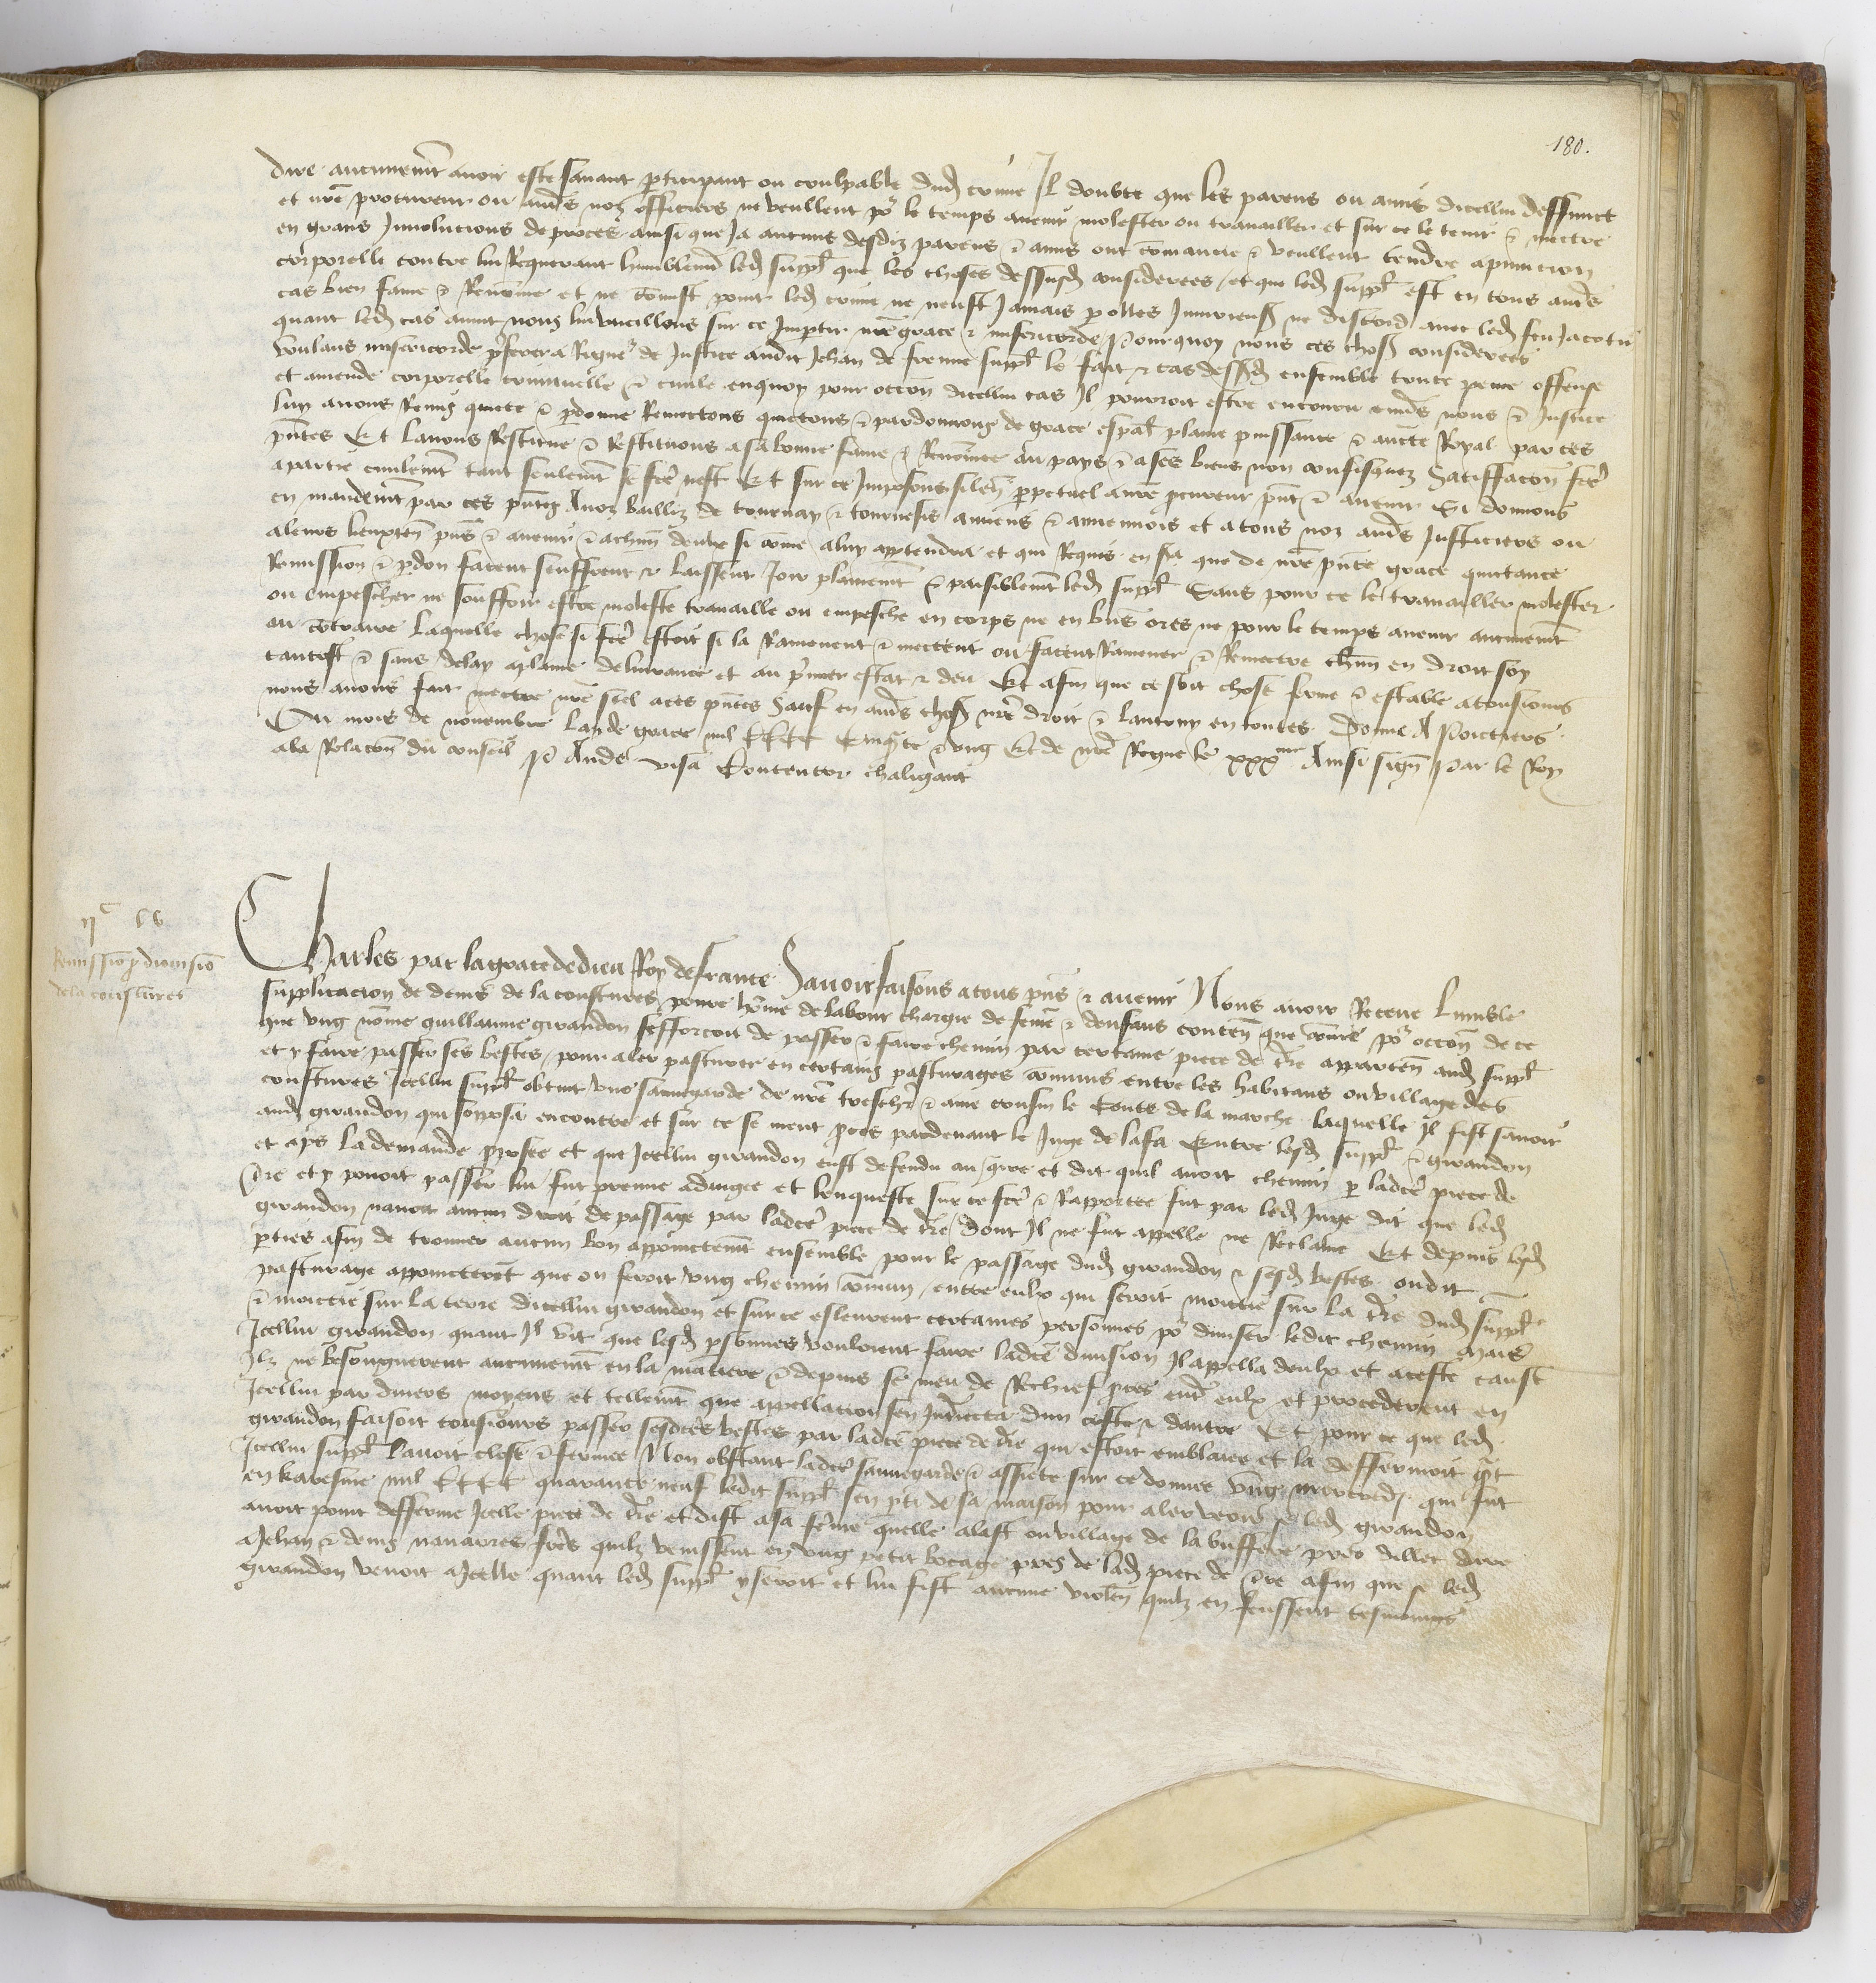 180.
dire aucunement avoir este savant participant ou coulpable dudit crime Il doubte que les parens ou amis dicellui deffunct
et nostre procureur ou autres noz officiers ne veullent pour le temps avenir molester ou travailler et sur ce le tenir et mectre
en grans Involucions de proces ainsi que Ja aucuns desdiz parens et amis ont commancie et veullent tendre a punicion
corporelle contre lui Requerant humblement ledit suppliant que les choses dessusdites considerees / et que ledit suppliant est en tous autres
cas bien fame et Renomme et ne commist point ledit crime ne neust Jamais parolles Injurieuses ne discord avec ledit feu Jacotin
quant ledit cas avint nous lui vueillons sur ce Impartir nostre grace et misericorde Pourquoy nous ces choses considerees
voulans misericorde preferer a Rigueur de Justice audit Jehan de suppliant le fait et cas dessusdit ensemble toute peine offense
et amende corporelle criminelle et civile enquoy pour occasion dicellui cas Il pourroit estre encouru envers nous et Justice
luy avons Remis quicte et pardonne Remectons quictons et pardonnons de grace especial plaine puissance et auctorite Royal par ces
presentes Et lavons Restitue et Restituons a sa bonne fame et Renommee au pays et a ses biens non confisquez Satisfacion faicte
a partie civilement tant seulement se faicte nest Et sur ce Imposons silence perpetuel a nostre procureur present et avenir Si donnons
en mandement par ces presentes A noz bailliz de tournay et tournesis amiens et amiennois et a tous noz autres Justiciers ou
a leurs lieuxtenans presens et avenir et a chacun deulx si comme a luy appartendra et qui Requis en sera que de nostre presente grace quictance
Remission et pardon facent seuffrent et laissent Joir plainement et paisiblement ledit suppliant Sans pour ce le travailler molester
ou empescher ne souffrir estre moleste travaille ou empesche en corps ne en biens ores ne pour le temps avenir aucunement
au contraire laquelle chose si faicte estoit si la Ramenent et mectent ou facent Ramener et Remectre chacun en droit soy
tantost et sans delay a plaine delivrance et au premier estat et deu Et afin que ce soit chose ferme et estable a tousjours
nous avons fait mectre nostre seel a ces presentes Sauf en autres choses nostre droit et lautruy en toutes Donne A Poictiers
Ou mois de novembre lan de grace mil CCCC Cinquante et ung Et de nostre Regne le xxx me Ainsi signe Par le Roy
a la Relacion du conseil P Ande visa Contentor chaligant
ii c lv
Remission pour dionisio
de la coustures
Charles par la grace de dieu Roy de france Savoir faisons a tous presens et avenir Nous avoir Receue lumble
supplicacion de denis de la coustures povre homme de labour chargie de femme et denfans contenant que comme pour occasion de ce
que ung nomme guillaume girandon sefforcoit de passer et faire chemin par certaine piece de terre appartenant audit suppliant
et y faire passer ses bestes / pour aler pasturer en certains pasturages communs entre les habitans ou village des
coustures Icellui suppliant obtint une sauvegarde de nostre treschier et ame cousin le Conte de la marche laquelle Il fist savoir
audit girandon qui sopposa encontre et sur ce se meut proces pardevant le Juge de Entre lesdits suppliant et girandon
et apres la demande propose et que Icellui girandon eust defendu au contraire et dit quil avoit chemin par ladicte piece de
terre et y povoit passer lui fut preuve adjugee et lenqueste sur ce faicte et Rapportee fut par ledit Juge dit que ledit
girandon navoit aucun droit de passage par ladicte piece de terre / dont Il ne fut appelle ne Reclame Et depuis lesdites
parties afin de trouver aucun bon appoinctement ensemble pour le passage dudit girandon et sesdites bestes oudit
pasturage appoincterent que on feroit ung chemin commun / entre eulx qui seroit moictie sur la terre dudit suppliant
et moictie sur la terre dicellui girandon et sur ce esleurent certaines personnes pour diviser ledit chemin Mais
Icellui girandon quant Il vit que lesdites personnes vouloient faire ladicte division Il appella deulx et a ceste cause
Ilz ne besongnerent aucunement en la matiere et depuis se meu de Rechief proces entre eulx et procederent en
Icellui par divers moyens et tellement que appellacion sen Interjecta dun coste et dautre Et pour ce que ledit
girandon faisoit tousjours passer sesdictes bestes par ladicte piece de terre qui estoit emblavee et la deffermoit quant
Icellui suppliant lavoit close et fermee Non obstant ladicte sauvegarde et assiete sur ce donnee Ung mercredi qui fut
en karesme mil CCCC quarante neuf ledit suppliant sen parti de sa maison pour aler veoir se ledit girandon
avoit point defferme Icelle piece de terre et dist a sa femme quelle alast ou village de la buffere pres dillec dire
a Jehan et denis navarres freres quilz venissent en ung petit bocage pres de ladite piece de terre afin que se ledit
girandon venoit a Icelle quant ledit suppliant y seroit et lui fist aucune violence quilz en feussent tesmoings